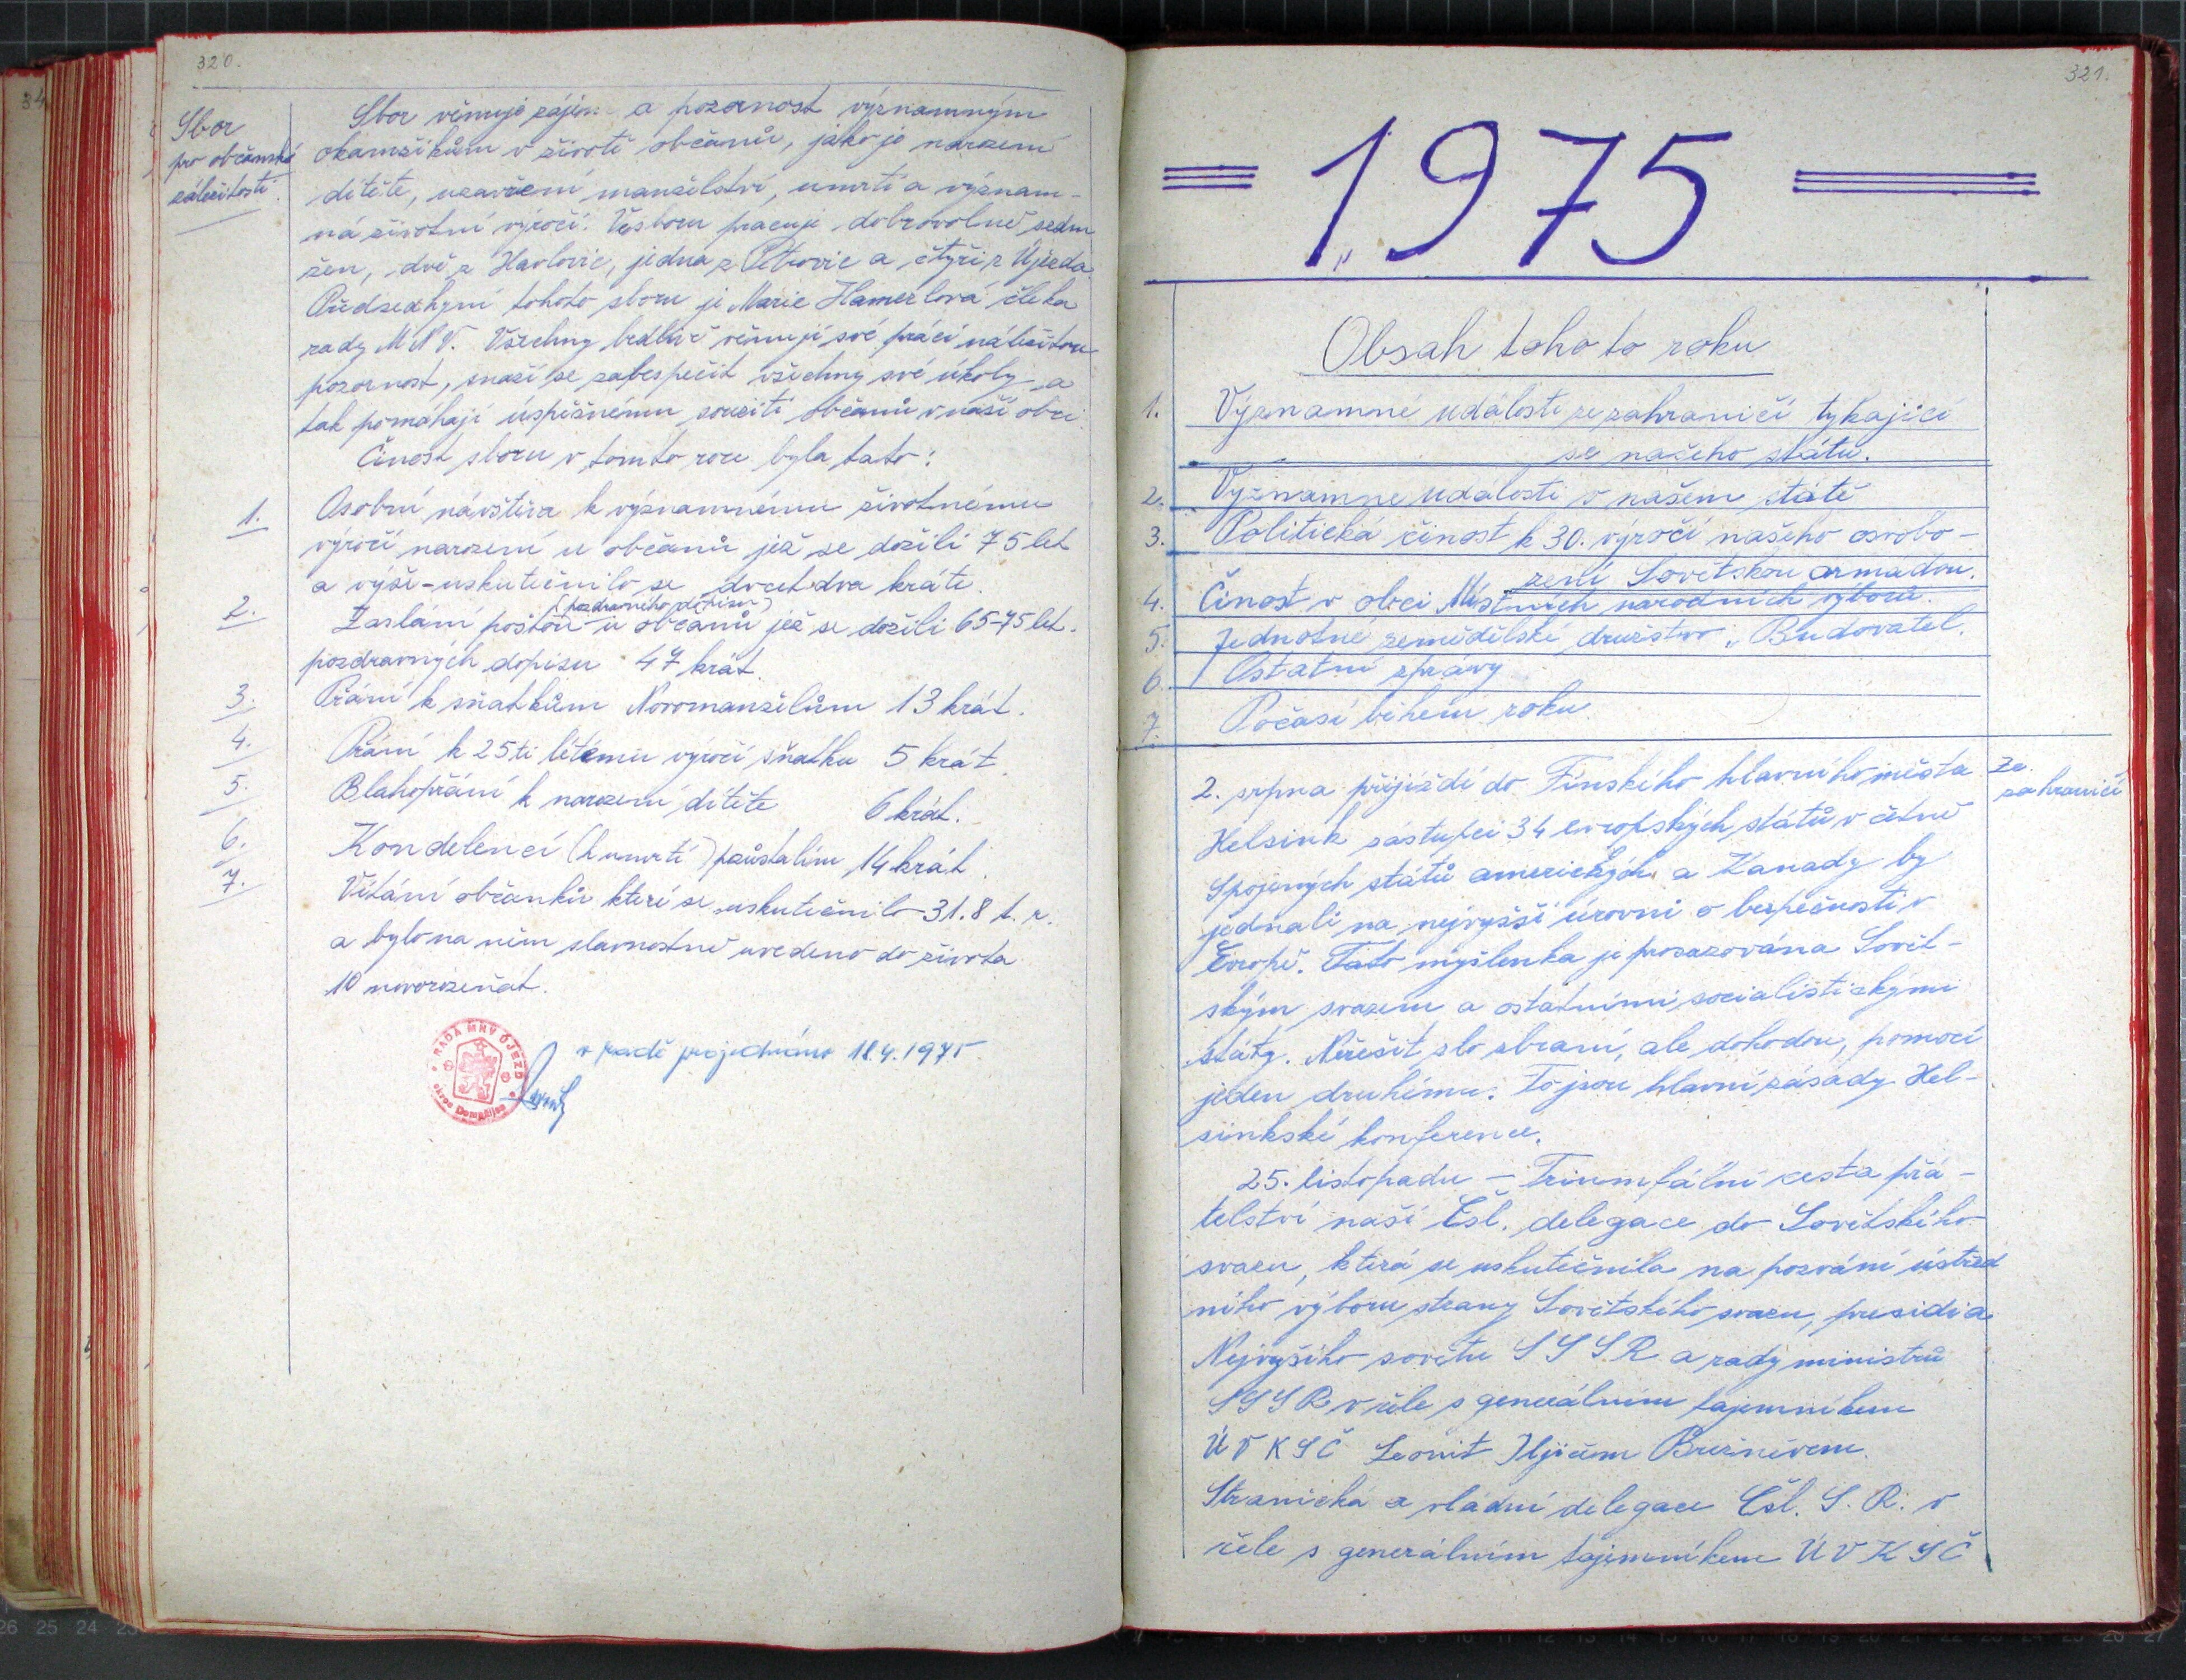 320.
Sbor
pro občanské
záležitosti.
Sbor věnuje zájem a pozornost významným
okamžikům v životě občanů, jako je narození
dítěte, uzavření manželství, umrtí a význam-
ná životní výročí. Ve sboru pracuje dobrovolně sedm
žen, dvě z Havlovic, jedna z Petrovic a čtyři z Újezda.
Předsedkyní tohoto sboru je Marie Hamerlová členka
rady M N V. Všechny bedlivě věnují své práci náležitou
pozornost, snaží se zabespečit všechny své úkoly a
tak pomáhají úspěšnému soužití občanů v naší obci.
Činost sboru v tomto roce byla tato:
1. Osobní návštěva k významnému životnímu
výročí narození u občanů jež se dožili 75 let
a výše - uskutečnilo se dvacetdva kráte.
(pozdravného dopisu)
2. Zaslání poštou u občanů jež se dožili 65-75 let.
pozdravných dopisu 47 krát.
3. Přání k sňatkům Novomanželům 13 krát.
4. Přání k 25ti letému vyročí sňatku 5 krát.
5. Blahopřání k narození dítěte 6 krát.
6. Kondelencí (k umrtí) pozůstalím 14 krát.
7. Vítání občánků které se uskutečnilo 31.8 t. r.
a bylo na něm slavnostně uvedeno do života
10 novorozeňat.
RADA MNV ÚJEZD
okres Domažlice
v radě projednáno 18.4.1975
321.
1975
Obsah tohoto roku
1. Významné události ze zahraničí tykající
se našeho státu.
2. Vyznamne události v našem státě
3. Politická činost k 30. výročí našeho osvobo-
zení Sovětskou armadou.
4. Činost v obci Místních narodních výborů.
5. Jednotné zemědělské družstvo „Budovatel.
6. Ostatní zprávy
7. Počasí během roku.
Ze
zahraničí
2. srpna přijíždí do Finského hlavního města
Helsink zástupci 34 evropských států v četně
Spojených států amerických a Kanady by
jednali na nejvyšší úrovni o bezpečnosti v
Evropě. Tato myšlenka je prosazována Sovět-
ským svazem a ostatními socialistickými
státy. Neřešit zlo zbraní, ale dohodou, pomocí
jeden druhému. To jsou hlavní zásady Hel-
sinkské konference.
25. listopadu - Triumfální cesta přá-
telství naší Čsl. delegace do Sovětského
svazu, která se uskutečnila na pozvání ústřed
ního výboru strany Sovětského svazu, presidia
Nejvyšího sovětu S S S R a rady ministrů
S S S R v čele s generálním tajemníkem
Ú V K S Č Leonit Iljičem Brežněvem.
Stranická a vládní delegace Čsl. S. R. v
čele s generálním tajemníkem Ú V K S Č